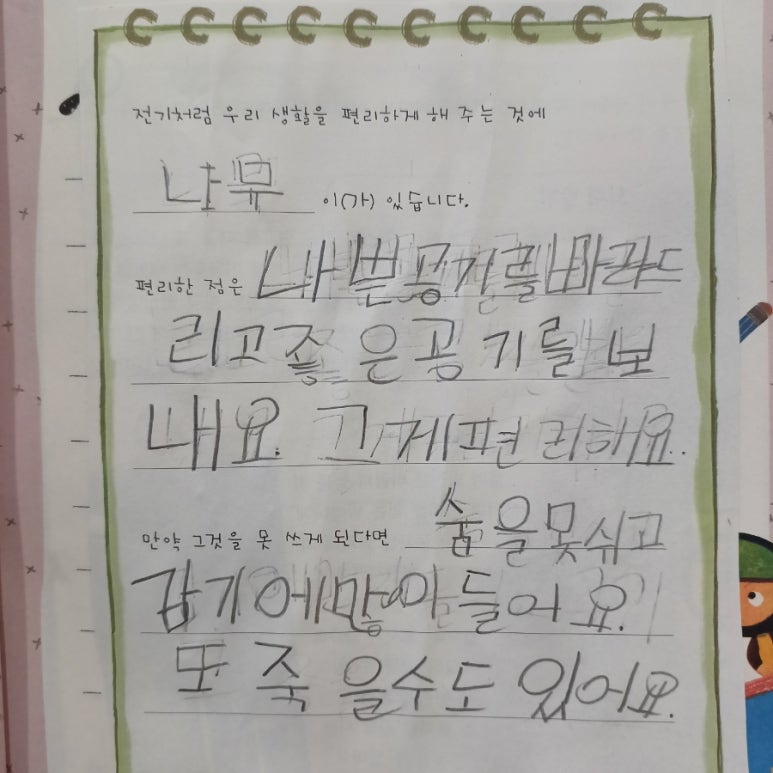 전기처럼 우리 생활을 편리하게 해 주는 것에
나무 이(가) 있습니다.
편리한 점은 나쁜공기를빠라드
리고좋은공기를 보
내요. 그게편리해요..
만약 그것을 못 쓰게 된다면 숨을못쉬고
감기에많이 들어요.
또 죽을수도 있어요.